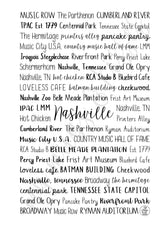 MUSIC ROW The Parthenon CUMBERLAND RIVER
TPAC Est. 1779 Centennial Park Tennessee State Capitol
The Hermitage printers alley pancake pantry
Music City U.S.A. country music hall of fame LMM
Trogous Steeplechase Riverfront Park Percy Priest Lake
Schermerhorn Nashville, Tennessee Grand Ole Opry
Nashville TN hot chicken Ernest Tubb Cheekwood
RCA Studio B Bluebird Cafe
LOVELESS CAFE batman building cheekwood
Nashville Zoo Belle Meade Plantation Ernst Art Museum
TPAC LMM Nashville Nashville TN
Hot Chicken Printers Alley
Cumberland River The Parthenon Ryman Auditorium
Music City U.S.A. COUNTRY MUSIC HALL OF FAME
RCA Studio B BELLE MEADE PLANTATION Est. 1779
Percy Priest Lake Frist Art Museum Bluebird Cafe
Loveless cafe BATMAN BUILDING Cheekwood
Nashville, tennessee Broadway the hermitage
centennial park TENNESSEE STATE CAPITOL
Grand Ole Opry Pancake Pantry Riverfront Park
BROADWAY Music Row RYMAN AUDITORIUM